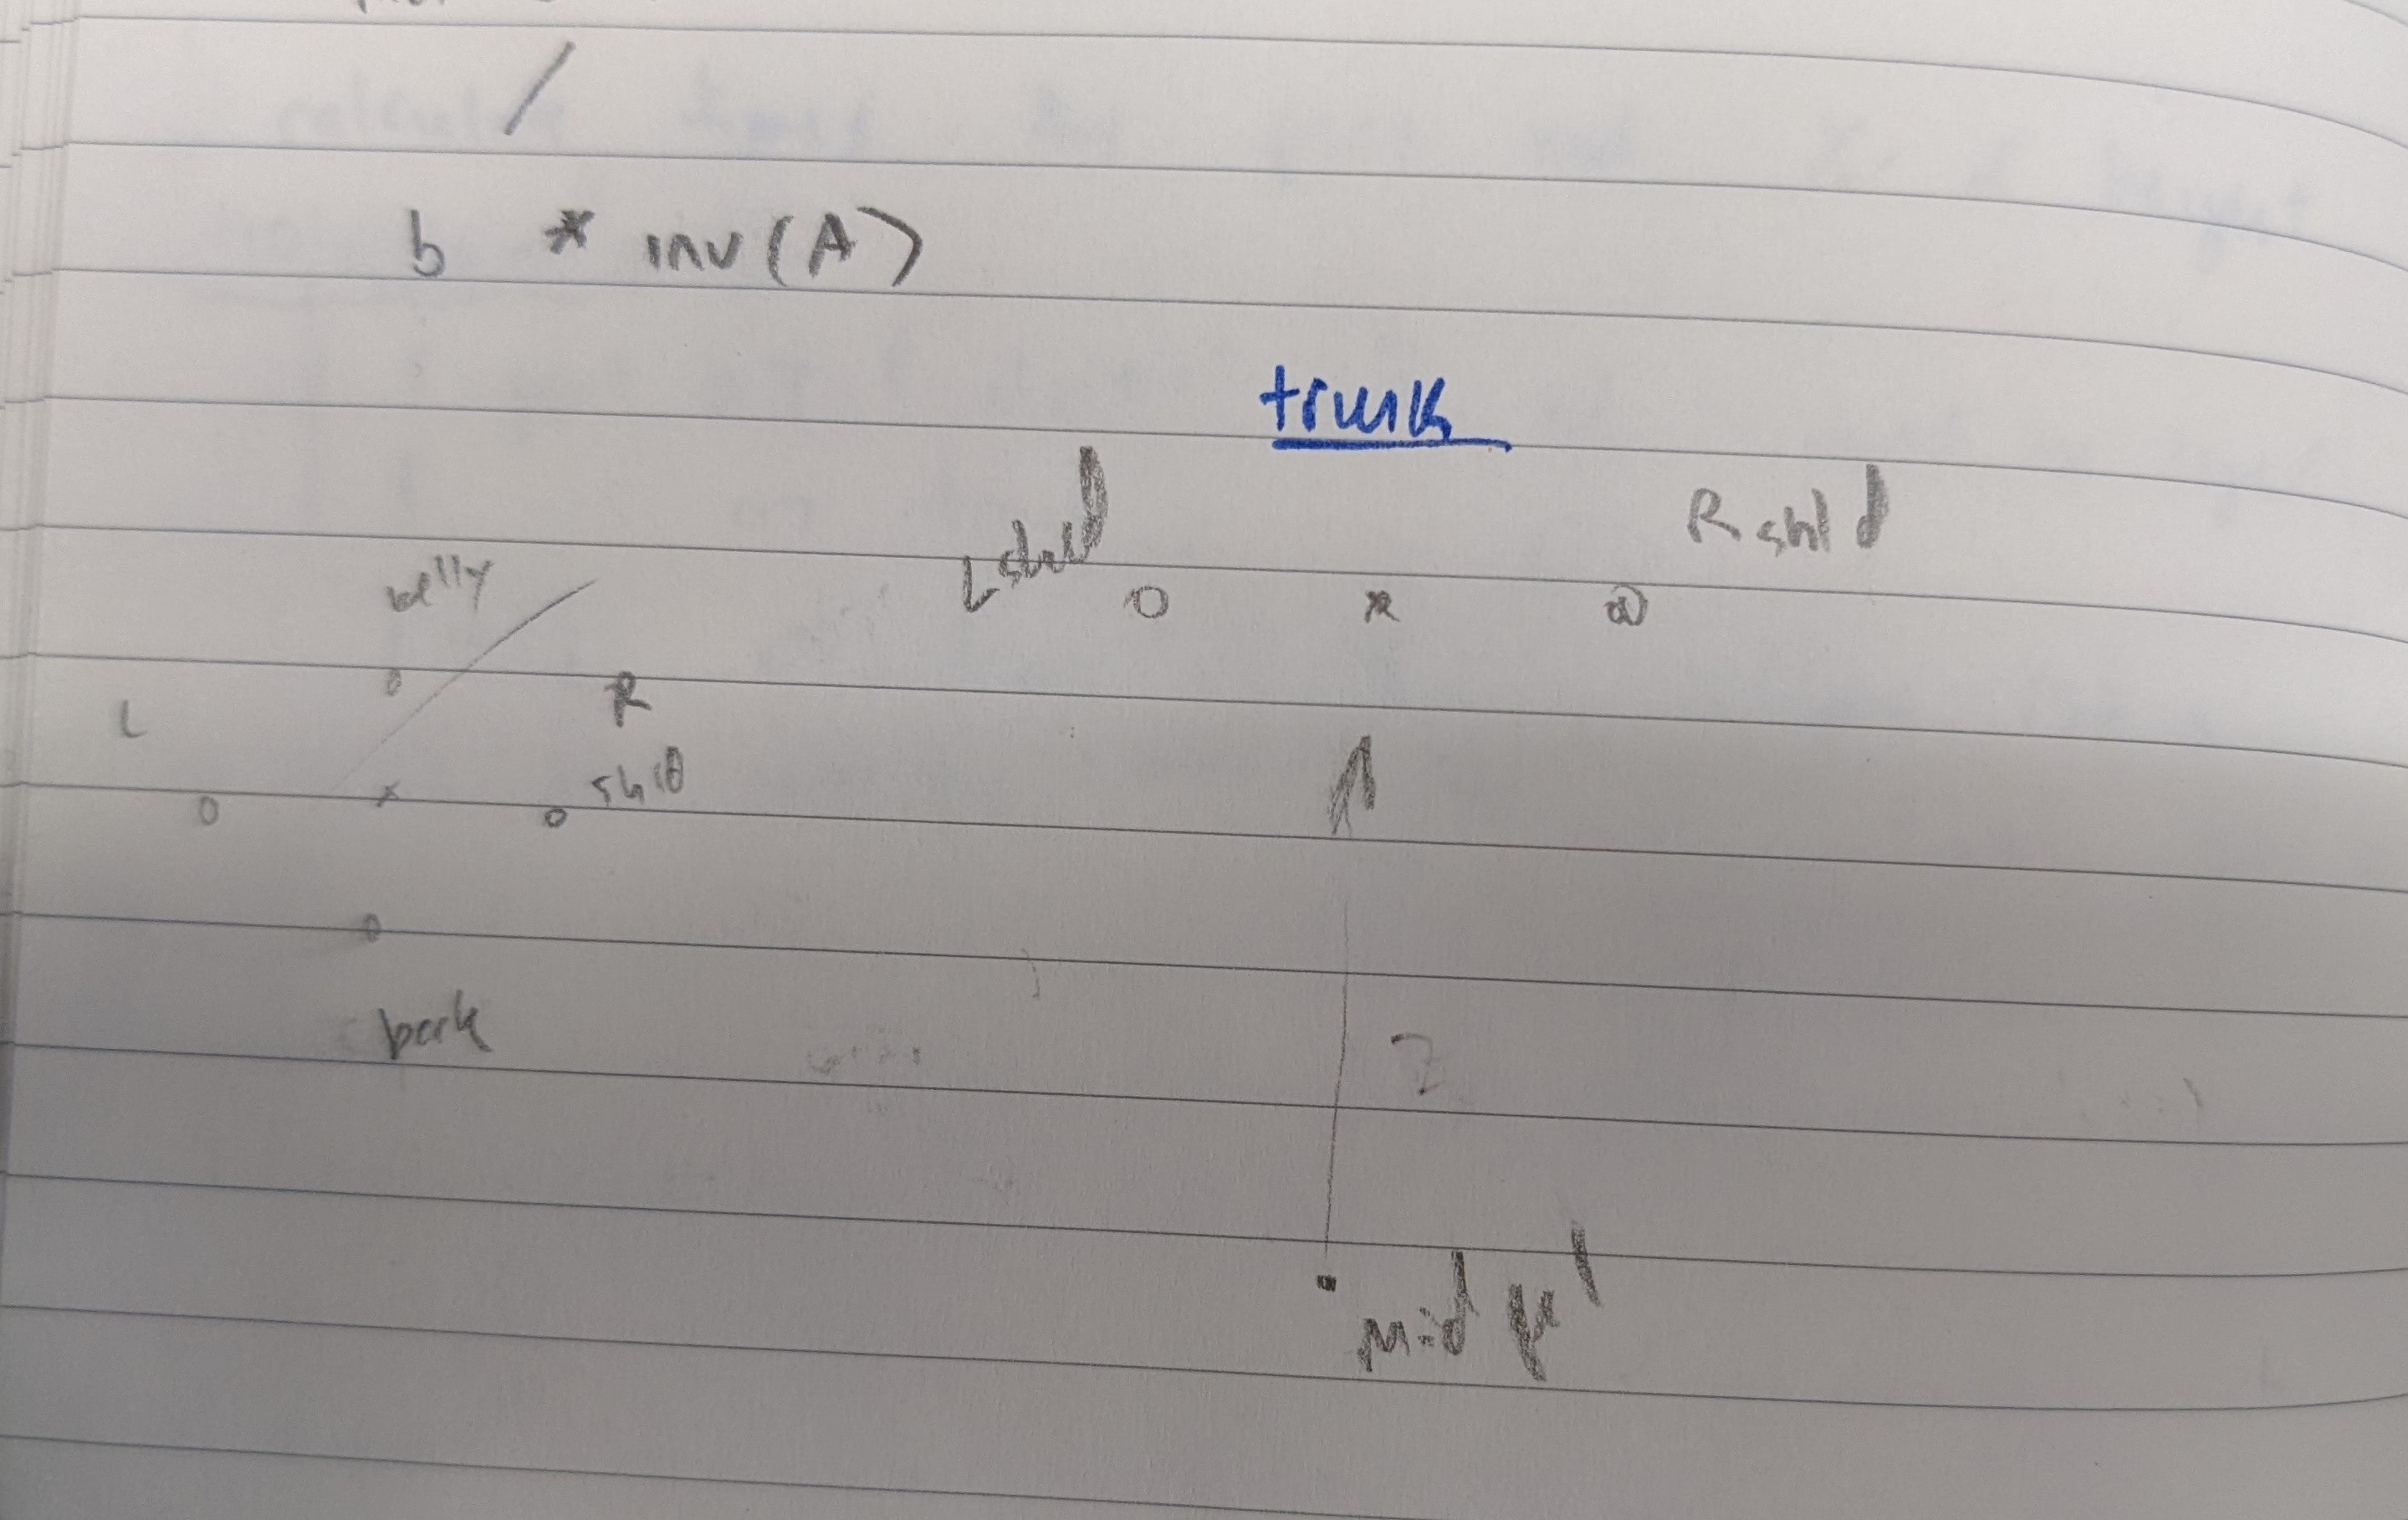 /
b * inv(A)
trunk
L shld
R shld
belly
L
R
shld
back
Z
Mid pel